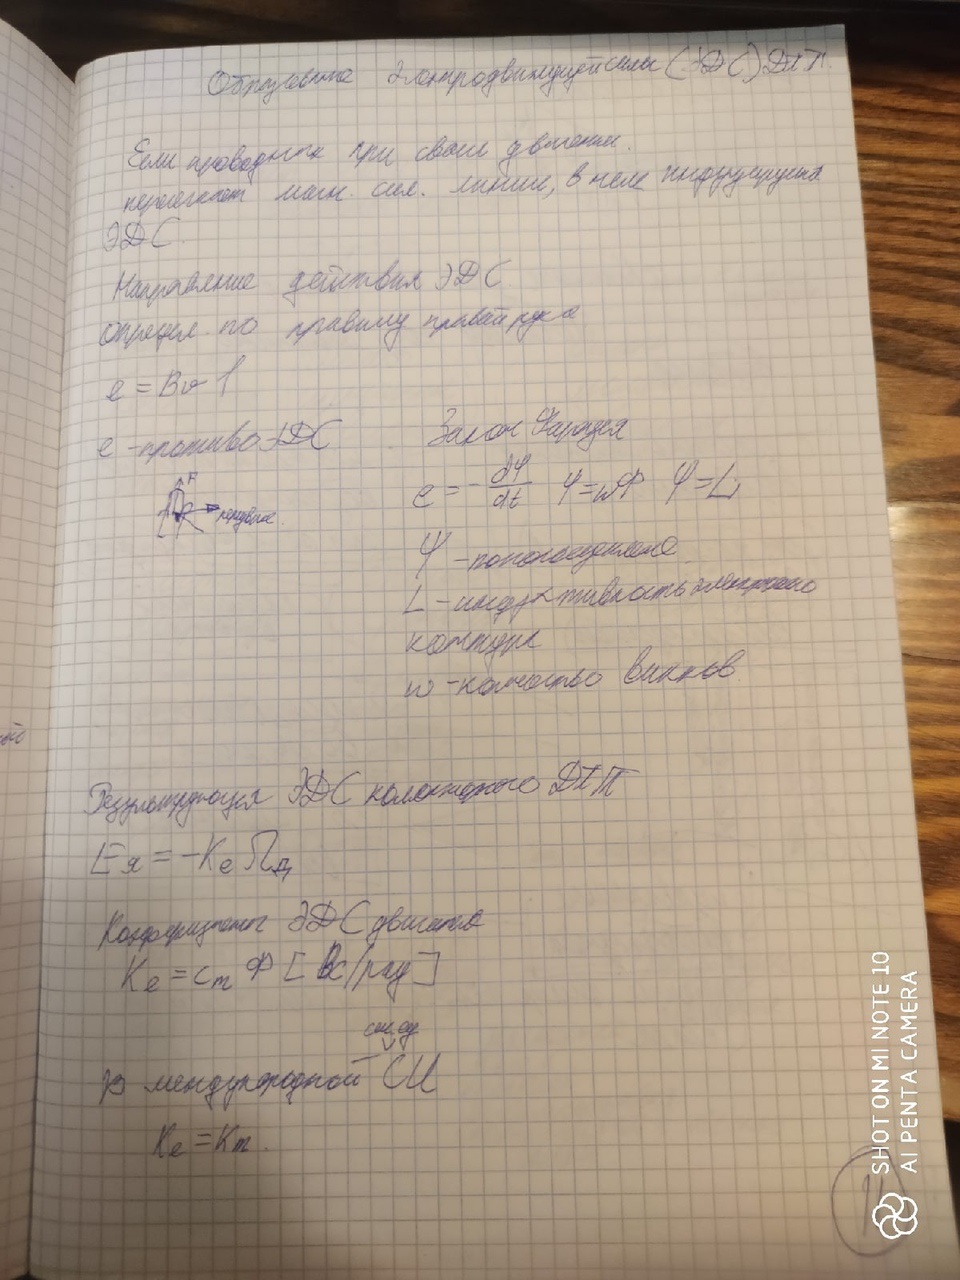 Образование электродвижущей силы (ЭДС) ДПТ.
Если проводник при своем движении.
пересекает магн. сил. линии, в нем индуцируется
ЭДС.
Направление действия ЭДС
определ. по правилу правой руки
e = Bv l
e - противо-ЭДС
F
Закон Фарадея
e = - dΨ/dt Ψ=wФ Ψ=Li
Ψ - потокосцепление
L - индуктивность электрического
контура
w - количество витков
Результирующая ЭДС коллекторного ДПТ
Eя = -Ke Ωд
Коэффициент ЭДС двигателя
Ke = cm Ф [Вс/рад]
сис. ед
В международной СИ
Ke = Km.
ый
SHOT ON MI NOTE 10
AI PENTA CAMERA